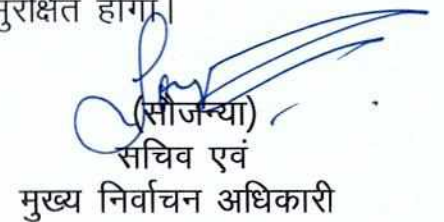 सुरक्षित होगा।
(सौजन्या)
सचिव एवं
मुख्य निर्वाचन अधिकारी